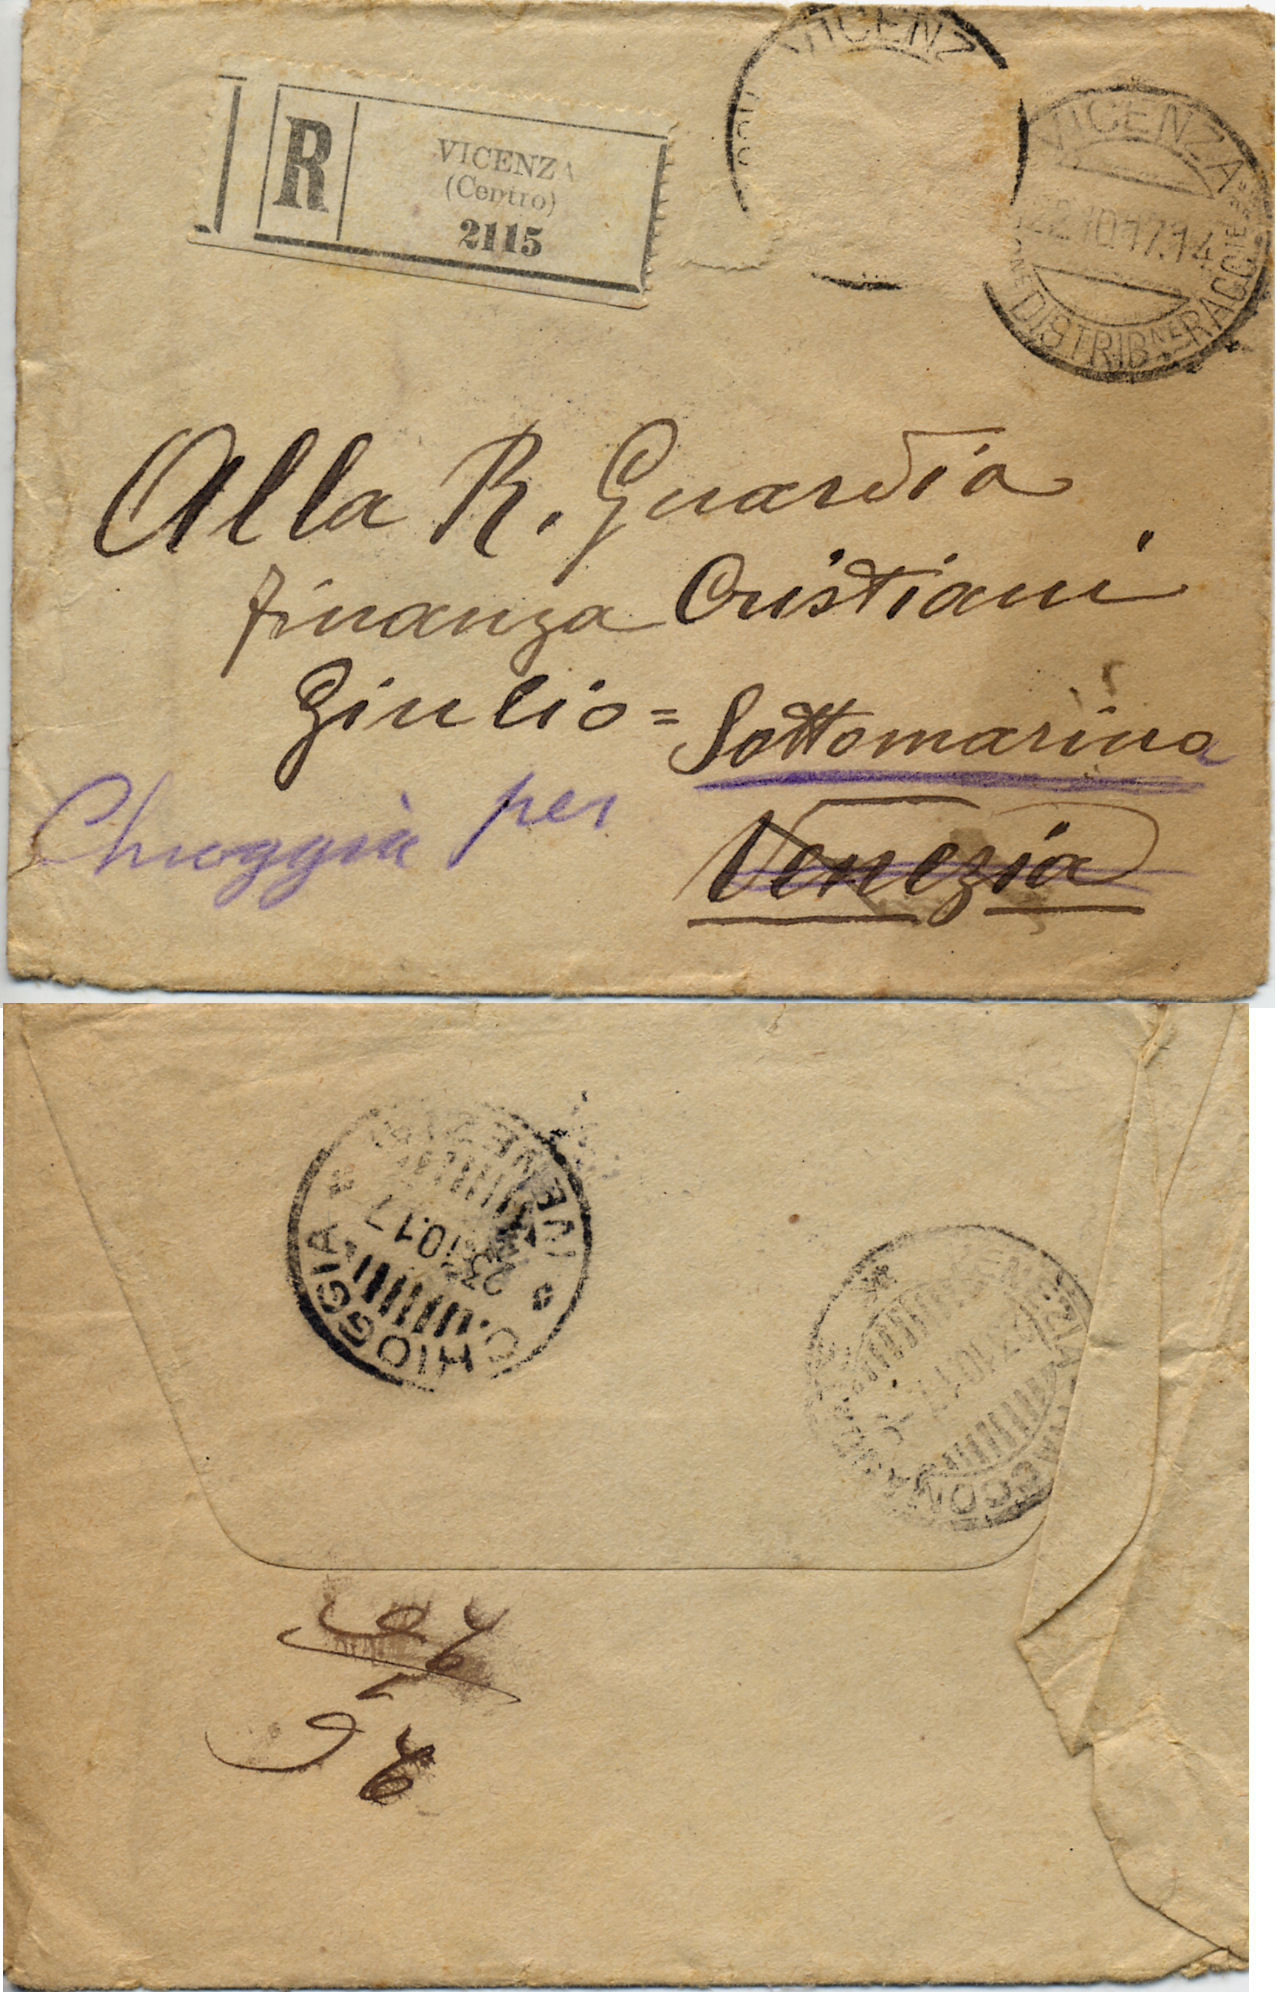 R
VICENZA
(Centro)
2115
VICENZ
VICENZA
22.10.17.14
DISTRIBNE RACC
Alla R. Guardia
finanza Cristiani
Giulio = Sottomarina
Chioggia per
Venezia
CHIOGGIA
VENEZIA
23.10.17